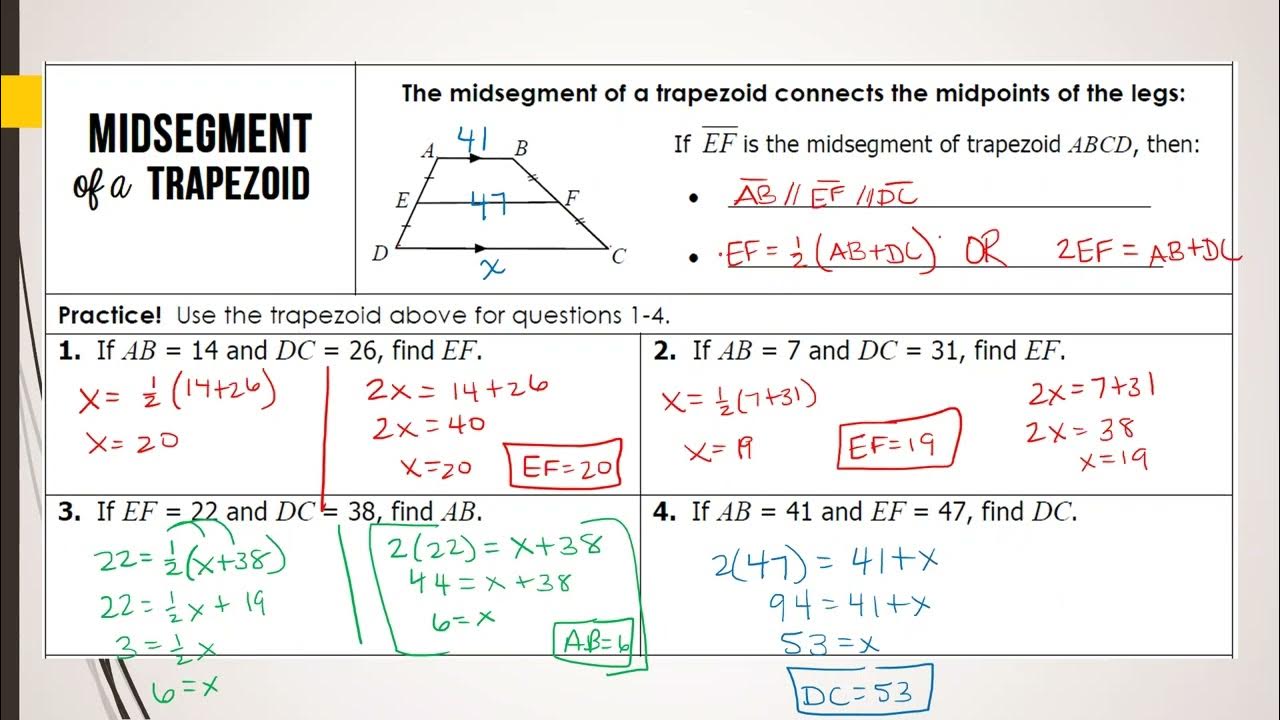 MIDSEGMENT
of a TRAPEZOID
The midsegment of a trapezoid connects the midpoints of the legs:
41
A B
E 47 F
D C
x
If EF is the midsegment of trapezoid ABCD, then:
• AB // EF // DC
• EF = 1/2 (AB+DC) OR 2EF = AB+DC
Practice! Use the trapezoid above for questions 1-4.
1. If AB = 14 and DC = 26, find EF.
x = 1/2 (14+26)
x = 20
2x = 14+26
2x = 40
x=20
EF=20
2. If AB = 7 and DC = 31, find EF.
x = 1/2 (7+31)
x = 19
EF=19
2x = 7+31
2x = 38
x=19
3. If EF = 22 and DC = 38, find AB.
22 = 1/2 (x+38)
22 = 1/2 x + 19
3 = 1/2 x
6 = x
2(22) = x+38
44 = x + 38
6 = x
AB=6
4. If AB = 41 and EF = 47, find DC.
2(47) = 41+x
94 = 41+x
53 = x
DC = 53